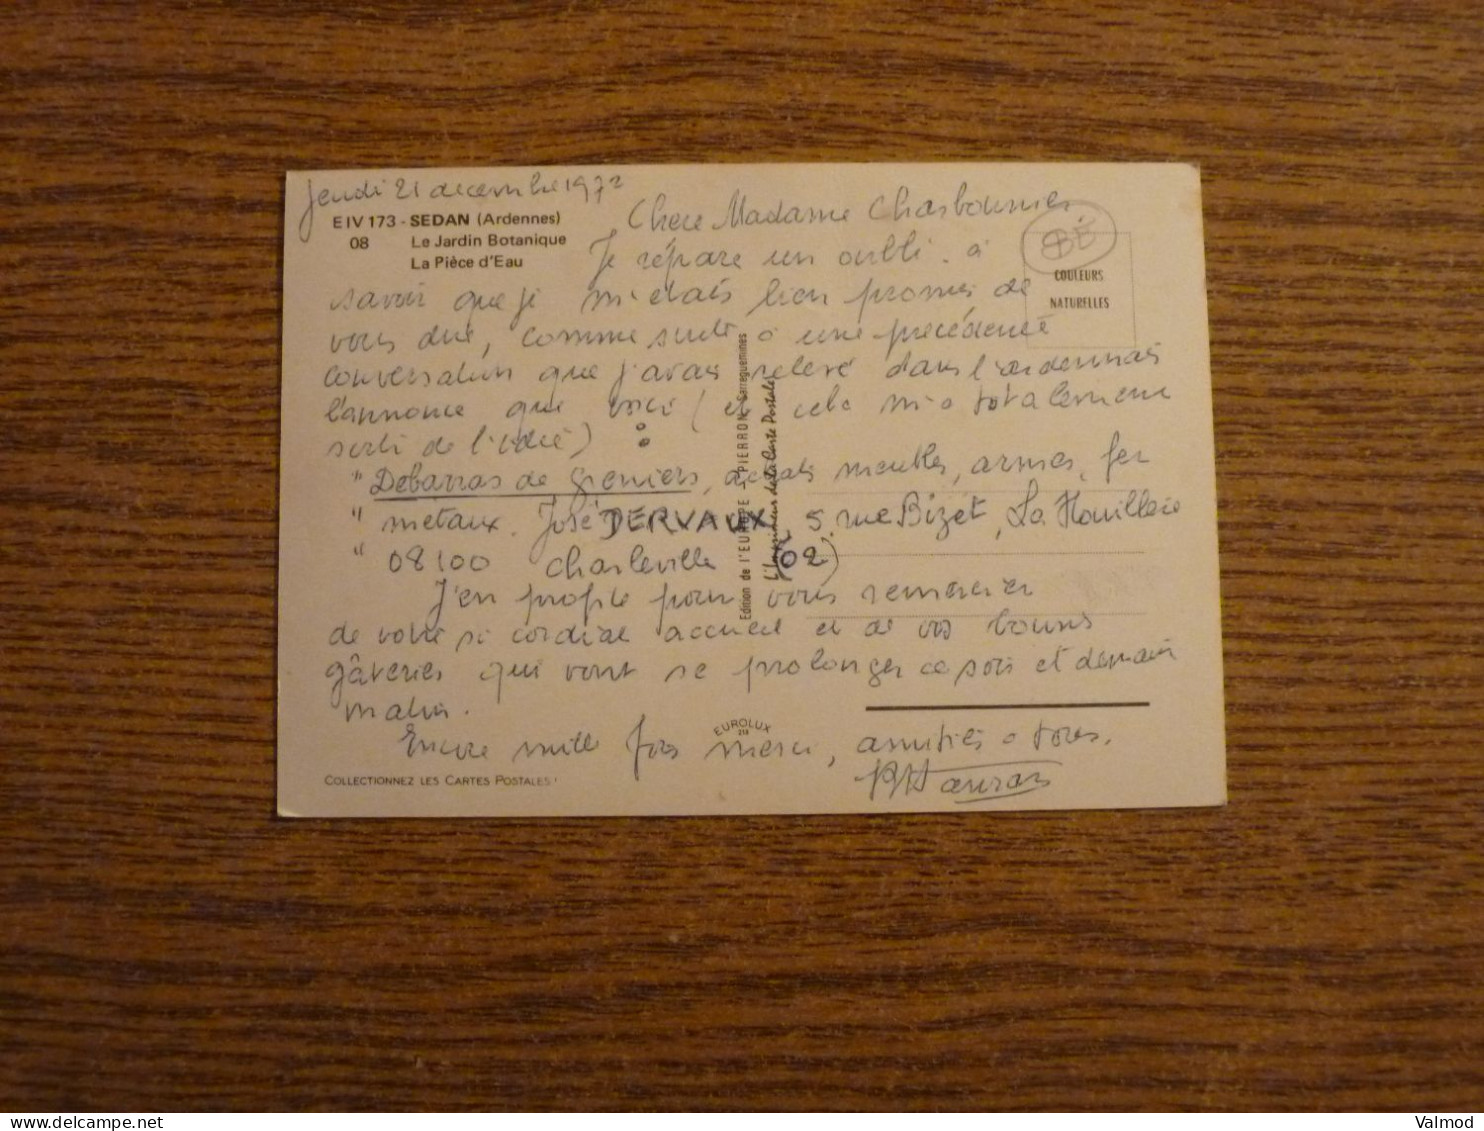 Jeudi 21 décembre 1972
E IV 173 - SEDAN (Ardennes)
08 Le Jardin Botanique
La Pièce d'Eau
Chère Madame Charbonnier,
Je répare un oubli. à
savoir que je m'étais bien promis de
vous dire, comme suite à une précédente
conversation que j'avais relevé dans l'ardennais
l'annonce que voici (et cela m'a totalement
sorti de l'idée) :
" Débarras de Greniers, achats meubles, armes, fer
" métaux. José DERVAUX 5 rue Bizet, La Houillère
" 08100 Charleville (02)
J'en profite pour vous remercier
de votre si cordial accueil et de vos bonnes
gâteries qui vont se prolonger ce soir et demain
matin.
Encore mille fois merci, amitiés à tous.
COULEURS
NATURELLES
BE
Edition de l'EUROPE - PIERRON - Sarreguemines
L'Imprimeur de la Carte Postale
EUROLUX
COLLECTIONNEZ LES CARTES POSTALES !
Valmod